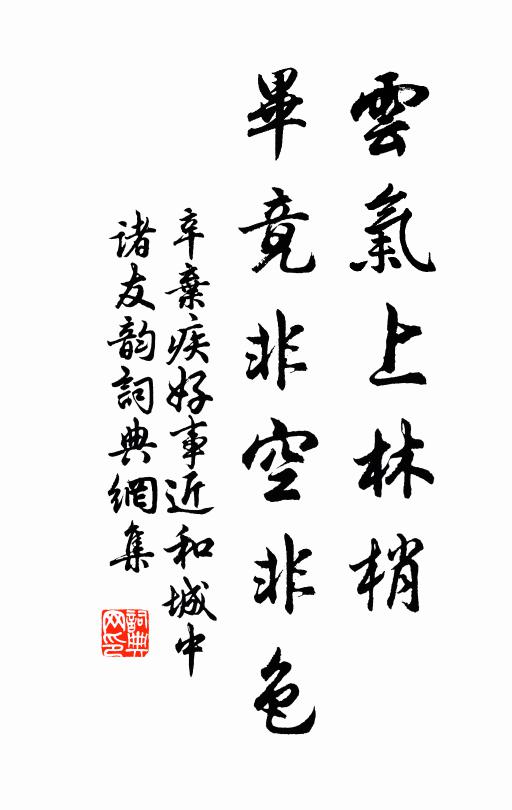 雲氣上林梢
畢竟非空非色
辛棄疾好事近和城中
诸友韵詞典網集
詞典网印